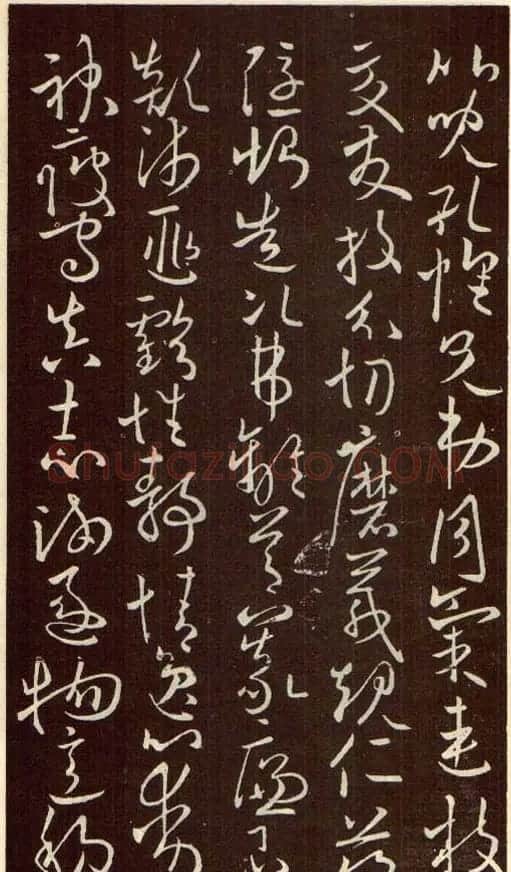 比兒孔懷兄弟同氣連枝
交友投分切磨箴規仁慈
隱惻造次弗離節義廉退
顛沛匪虧性靜情逸心動
神疲守真志滿逐物意移
Shufaziliao.COM